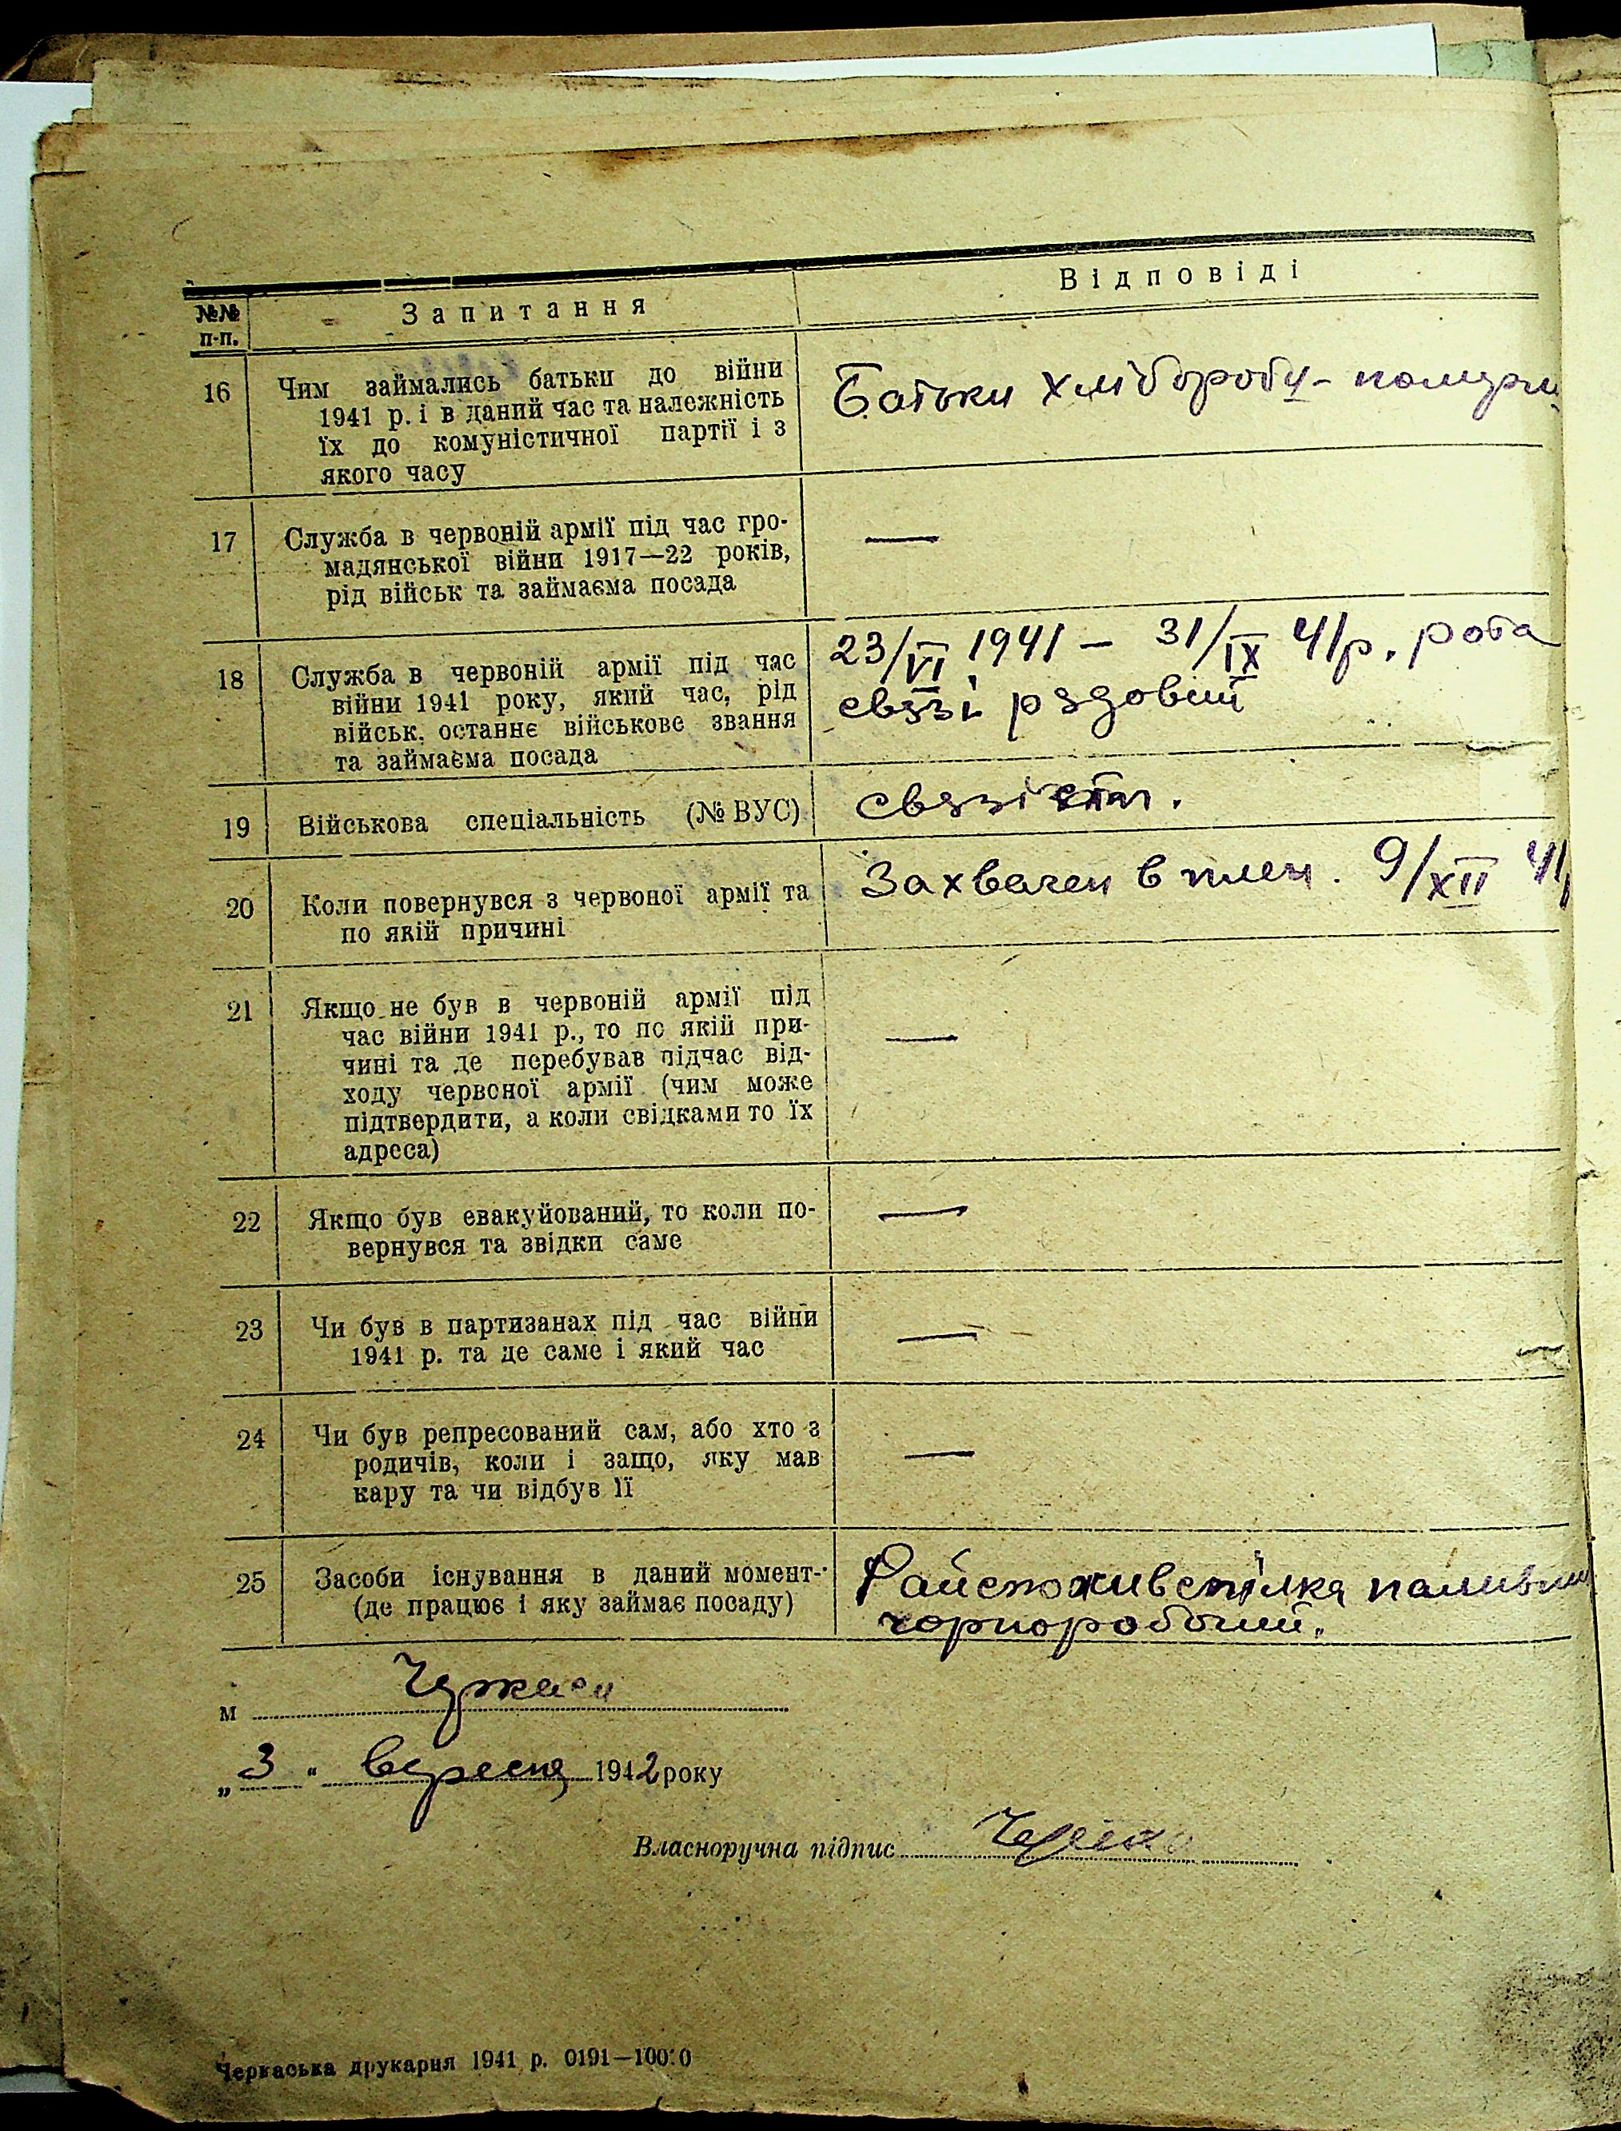 №№ п-п.
Запитання
Відповіді
16
Чим займались батьки до війни
1941 р. і в даний час та належність
їх до комуністичної партії і з
якого часу
Батьки хлібороби -
17
Служба в червоній армії під час гро-
мадянської війни 1917—22 років,
рід військ та займаєма посада
—
18
Служба в червоній армії під час
війни 1941 року, який час, рід
військ, останнє військове звання
та займаєма посада
23/VI 1941 – 31/IX 41р. рота
связі рядовий
19
Військова спеціальність (№ ВУС)
связіст.
20
Коли повернувся з червоної армії та
по якій причині
Захвачен в плен. 9/XII 41
21
Якщо не був в червоній армії під
час війни 1941 р., то по якій при-
чині та де перебував підчас від-
ходу червоної армії (чим може
підтвердити, а коли свідками то їх
адреса)
—
22
Якщо був евакуйований, то коли по-
вернувся та звідки саме
—
23
Чи був в партизанах під час війни
1941 р. та де саме і який час
—
24
Чи був репресований сам, або хто з
родичів, коли і защо, яку мав
кару та чи відбув її
—
25
Засоби існування в даний момент-
(де працює і яку займає посаду)
Райспоживспілка
чорноробочий.
м Черкаси
„3“ вересня 1942 року
Власноручна підпис
Черкаська друкарня 1941 р. 0191—10000